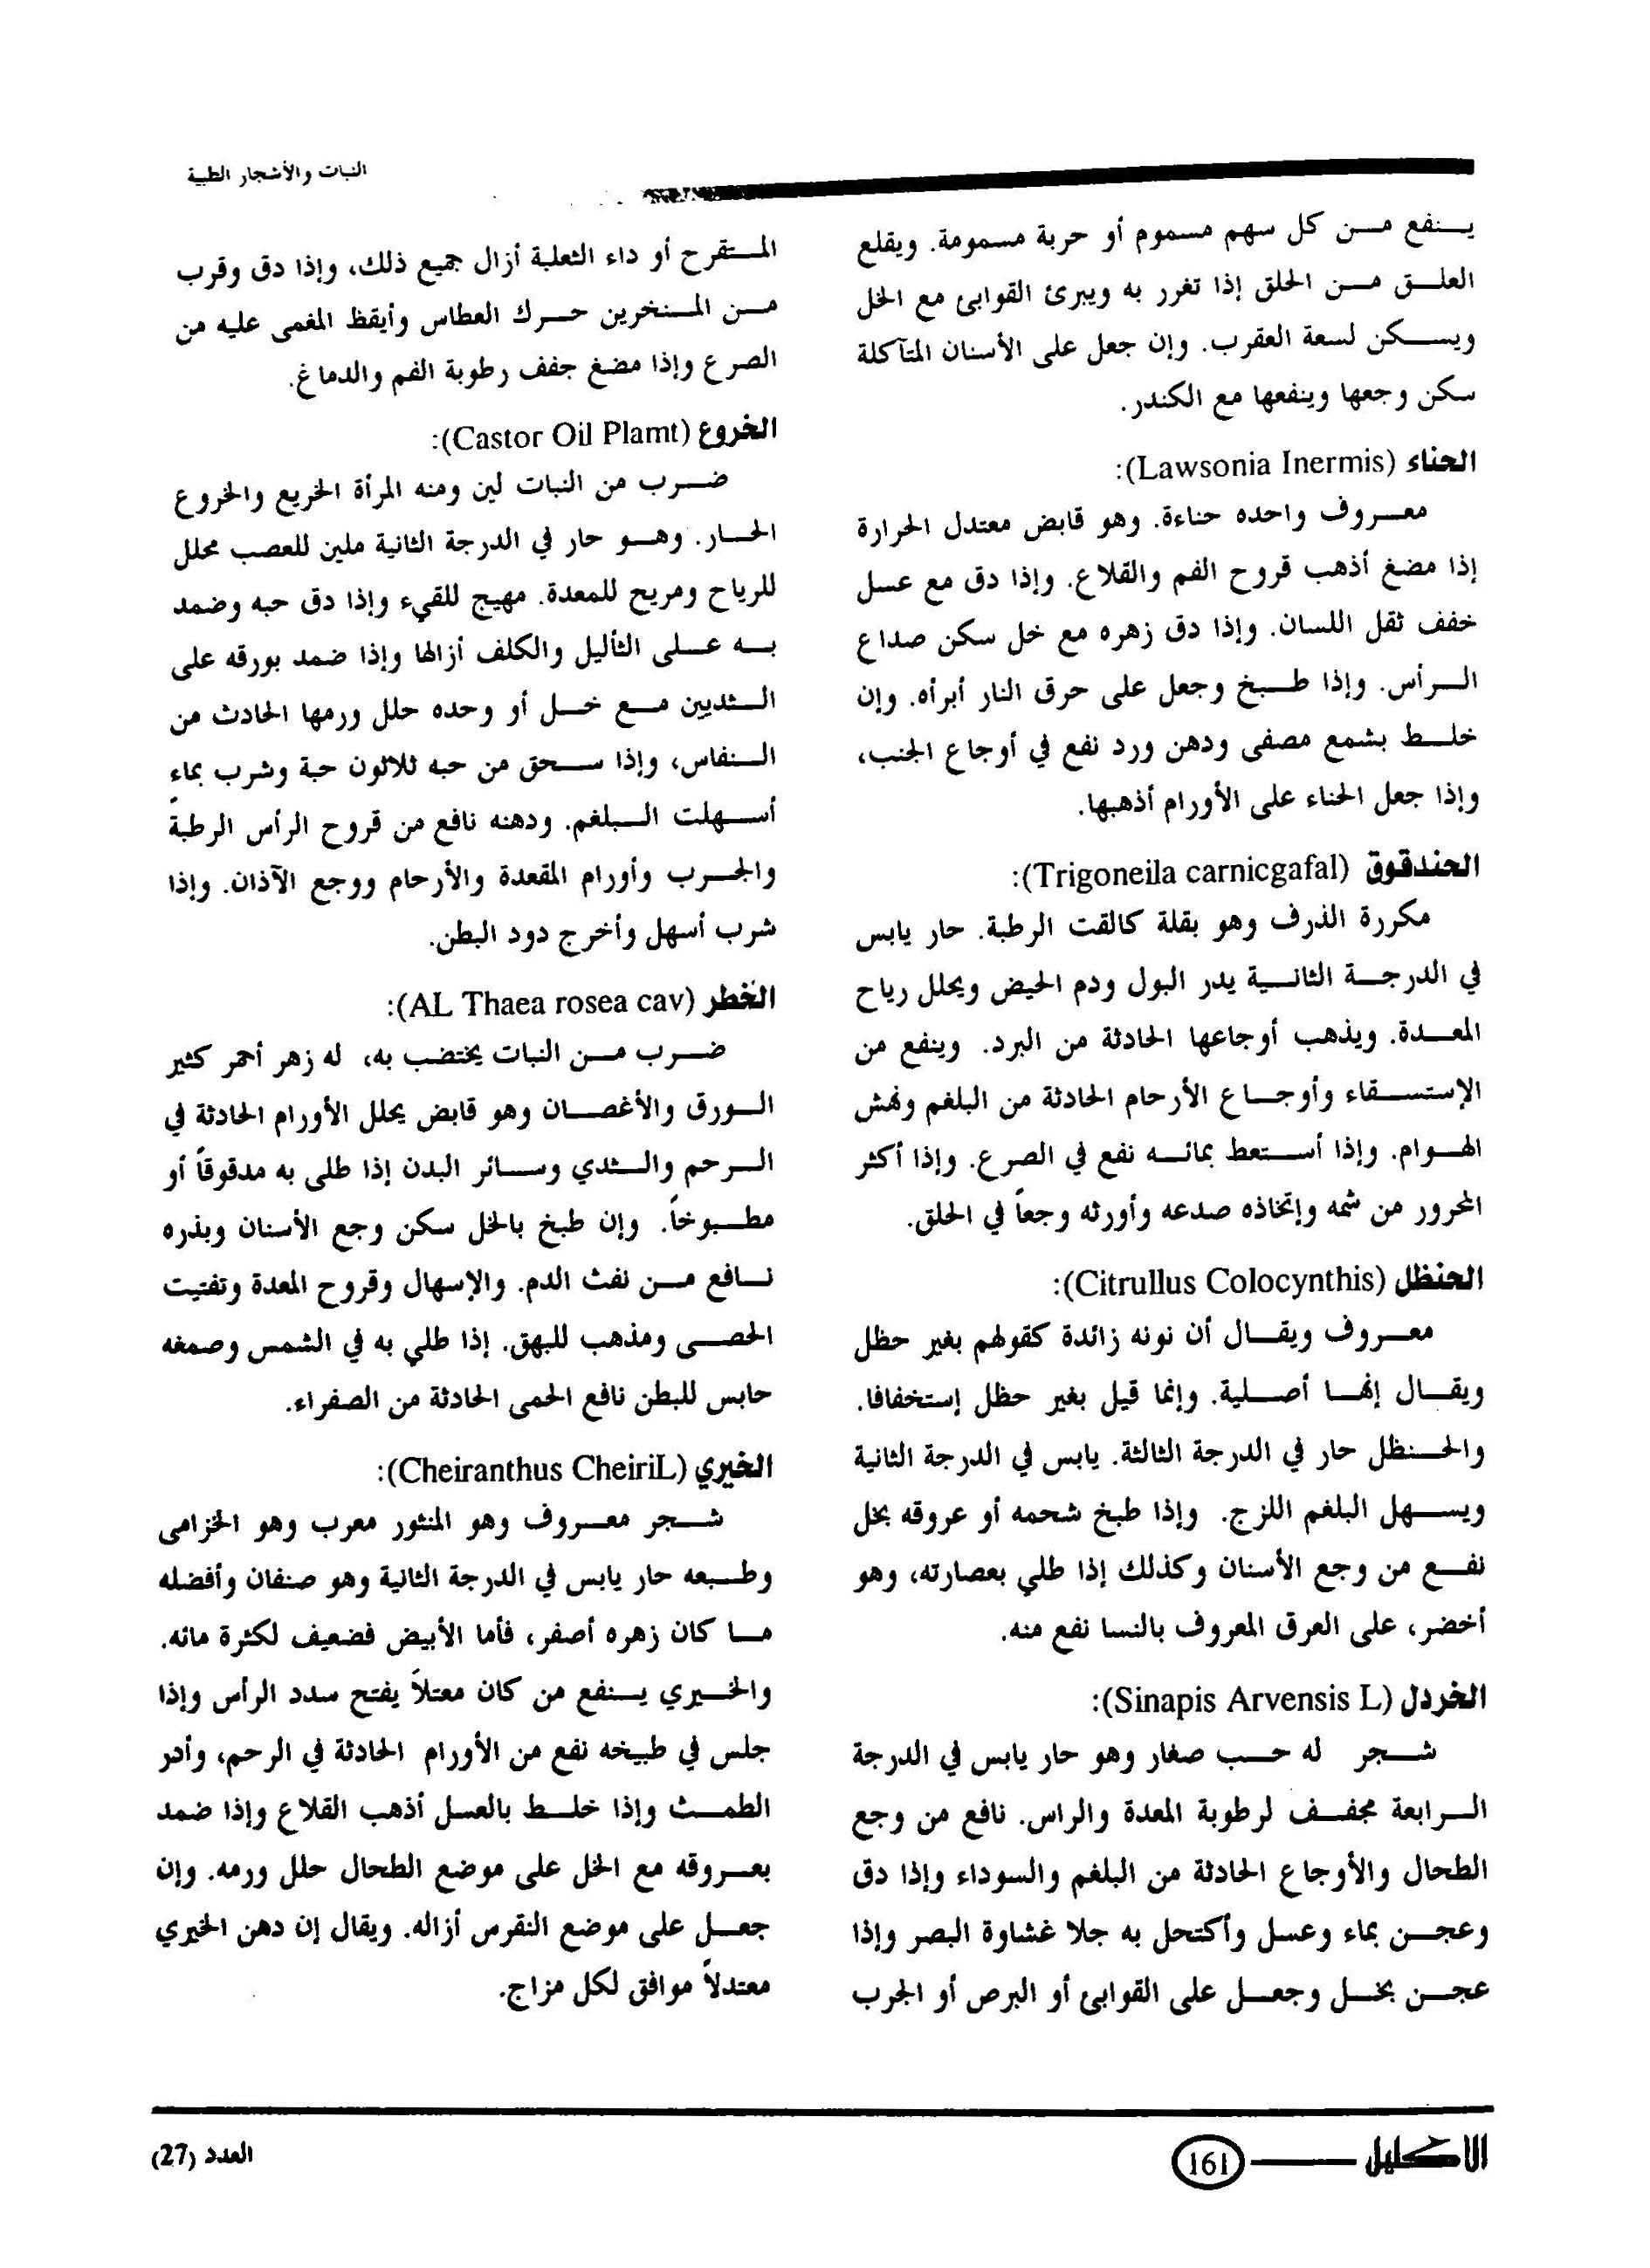 النبات والأشجار الطبية
ينفع من كل سهم مسموم أو حربة مسمومة. ويقلع
العلق من الحلق إذا تغرر به ويبرئ القوابئ مع الخل
ويسكن لسعة العقرب. وإن جعل على الأسنان المتآكلة
سكن وجعها وينفعها مع الكندر.
الحناء (Lawsonia Inermis):
معروف واحده حناءة. وهو قابض معتدل الحرارة
إذا مضغ أذهب قروح الفم والقلاع. وإذا دق مع عسل
خفف ثقل اللسان. وإذا دق زهره مع خل سكن صداع
الرأس. وإذا طبخ وجعل على حرق النار أبرأه. وإن
خلط بشمع مصفى ودهن ورد نفع في أوجاع الجنب،
وإذا جعل الحناء على الأورام أذهبها.
الحندقوق (Trigoneila carnicgafal):
مكررة الذرف وهو بقلة كالقت الرطبة. حار يابس
في الدرجة الثانية يدر البول ودم الحيض ويحلل رياح
المعدة. ويذهب أوجاعها الحادثة من البرد. وينفع من
الإستسقاء وأوجاع الأرحام الحادثة من البلغم ونهش
الهوام. وإذا أستعط بمائه نفع في الصرع. وإذا أكثر
المحرور من شمه وإتخاذه صدعه وأورثه وجعاً في الحلق.
الحنظل (Citrullus Colocynthis):
معروف ويقال أن نونه زائدة كقولهم بغير حظل
ويقال إنها أصلية. وإنما قيل بغير حظل إستخفافا.
والحنظل حار في الدرجة الثالثة. يابس في الدرجة الثانية
ويسهل البلغم اللزج. وإذا طبخ شحمه أو عروقه بخل
نفع من وجع الأسنان وكذلك إذا طلي بعصارته، وهو
أخضر، على العرق المعروف بالنسا نفع منه.
الخردل (Sinapis Arvensis L):
شجر له حب صغار وهو حار يابس في الدرجة
الرابعة مجفف لرطوبة المعدة والراس. نافع من وجع
الطحال والأوجاع الحادثة من البلغم والسوداء وإذا دق
وعجن بماء وعسل وأكتحل به جلا غشاوة البصر وإذا
عجن بخل وجعل على القوابئ أو البرص أو الجرب
المتقرح أو داء الثعلبة أزال جميع ذلك، وإذا دق وقرب
من المنخرين حرك العطاس وأيقظ المغمى عليه من
الصرع وإذا مضغ جفف رطوبة الفم والدماغ.
الخروع (Castor Oil Plamt):
ضرب من النبات لين ومنه المرأة الخريع والخروع
الحار. وهو حار في الدرجة الثانية ملين للعصب محلل
للرياح ومريح للمعدة. مهيج للقيء وإذا دق حبه وضمد
به على الثآليل والكلف أزالها وإذا ضمد بورقه على
الثديين مع خل أو وحده حلل ورمها الحادث من
النفاس، وإذا سحق من حبه ثلاثون حبة وشرب بماء
أسهلت البلغم. ودهنه نافع من قروح الرأس الرطبة
والجرب وأورام المقعدة والأرحام ووجع الآذان. وإذا
شرب أسهل وأخرج دود البطن.
الخطر (AL Thaea rosea cav):
ضرب من النبات يختضب به، له زهر أحمر كثير
الورق والأغصان وهو قابض يحلل الأورام الحادثة في
الرحم والثدي وسائر البدن إذا طلى به مدقوقاً أو
مطبوخاً. وإن طبخ بالخل سكن وجع الأسنان وبذره
نافع من نفث الدم. والإسهال وقروح المعدة وتفتيت
الحصى ومذهب للبهق. إذا طلي به في الشمس وصمغه
حابس للبطن نافع الحمى الحادثة من الصفراء.
الخيري (Cheiranthus CheiriL):
شجر معروف وهو المنثور معرب وهو الخزامى
وطبعه حار يابس في الدرجة الثانية وهو صنفان وأفضله
ما كان زهره أصفر، فأما الأبيض فضعيف لكثرة مائه.
والخيري ينفع من كان معتلاً يفتح سدد الرأس وإذا
جلس في طبيخه نفع من الأورام الحادثة في الرحم، وأدر
الطمث وإذا خلط بالعسل أذهب القلاع وإذا ضمد
بعروقه مع الخل على موضع الطحال حلل ورمه. وإن
جعل على موضع النقرس أزاله. ويقال إن دهن الخيري
معتدلاً موافق لكل مزاج.
الاكليل 161 العدد (27)